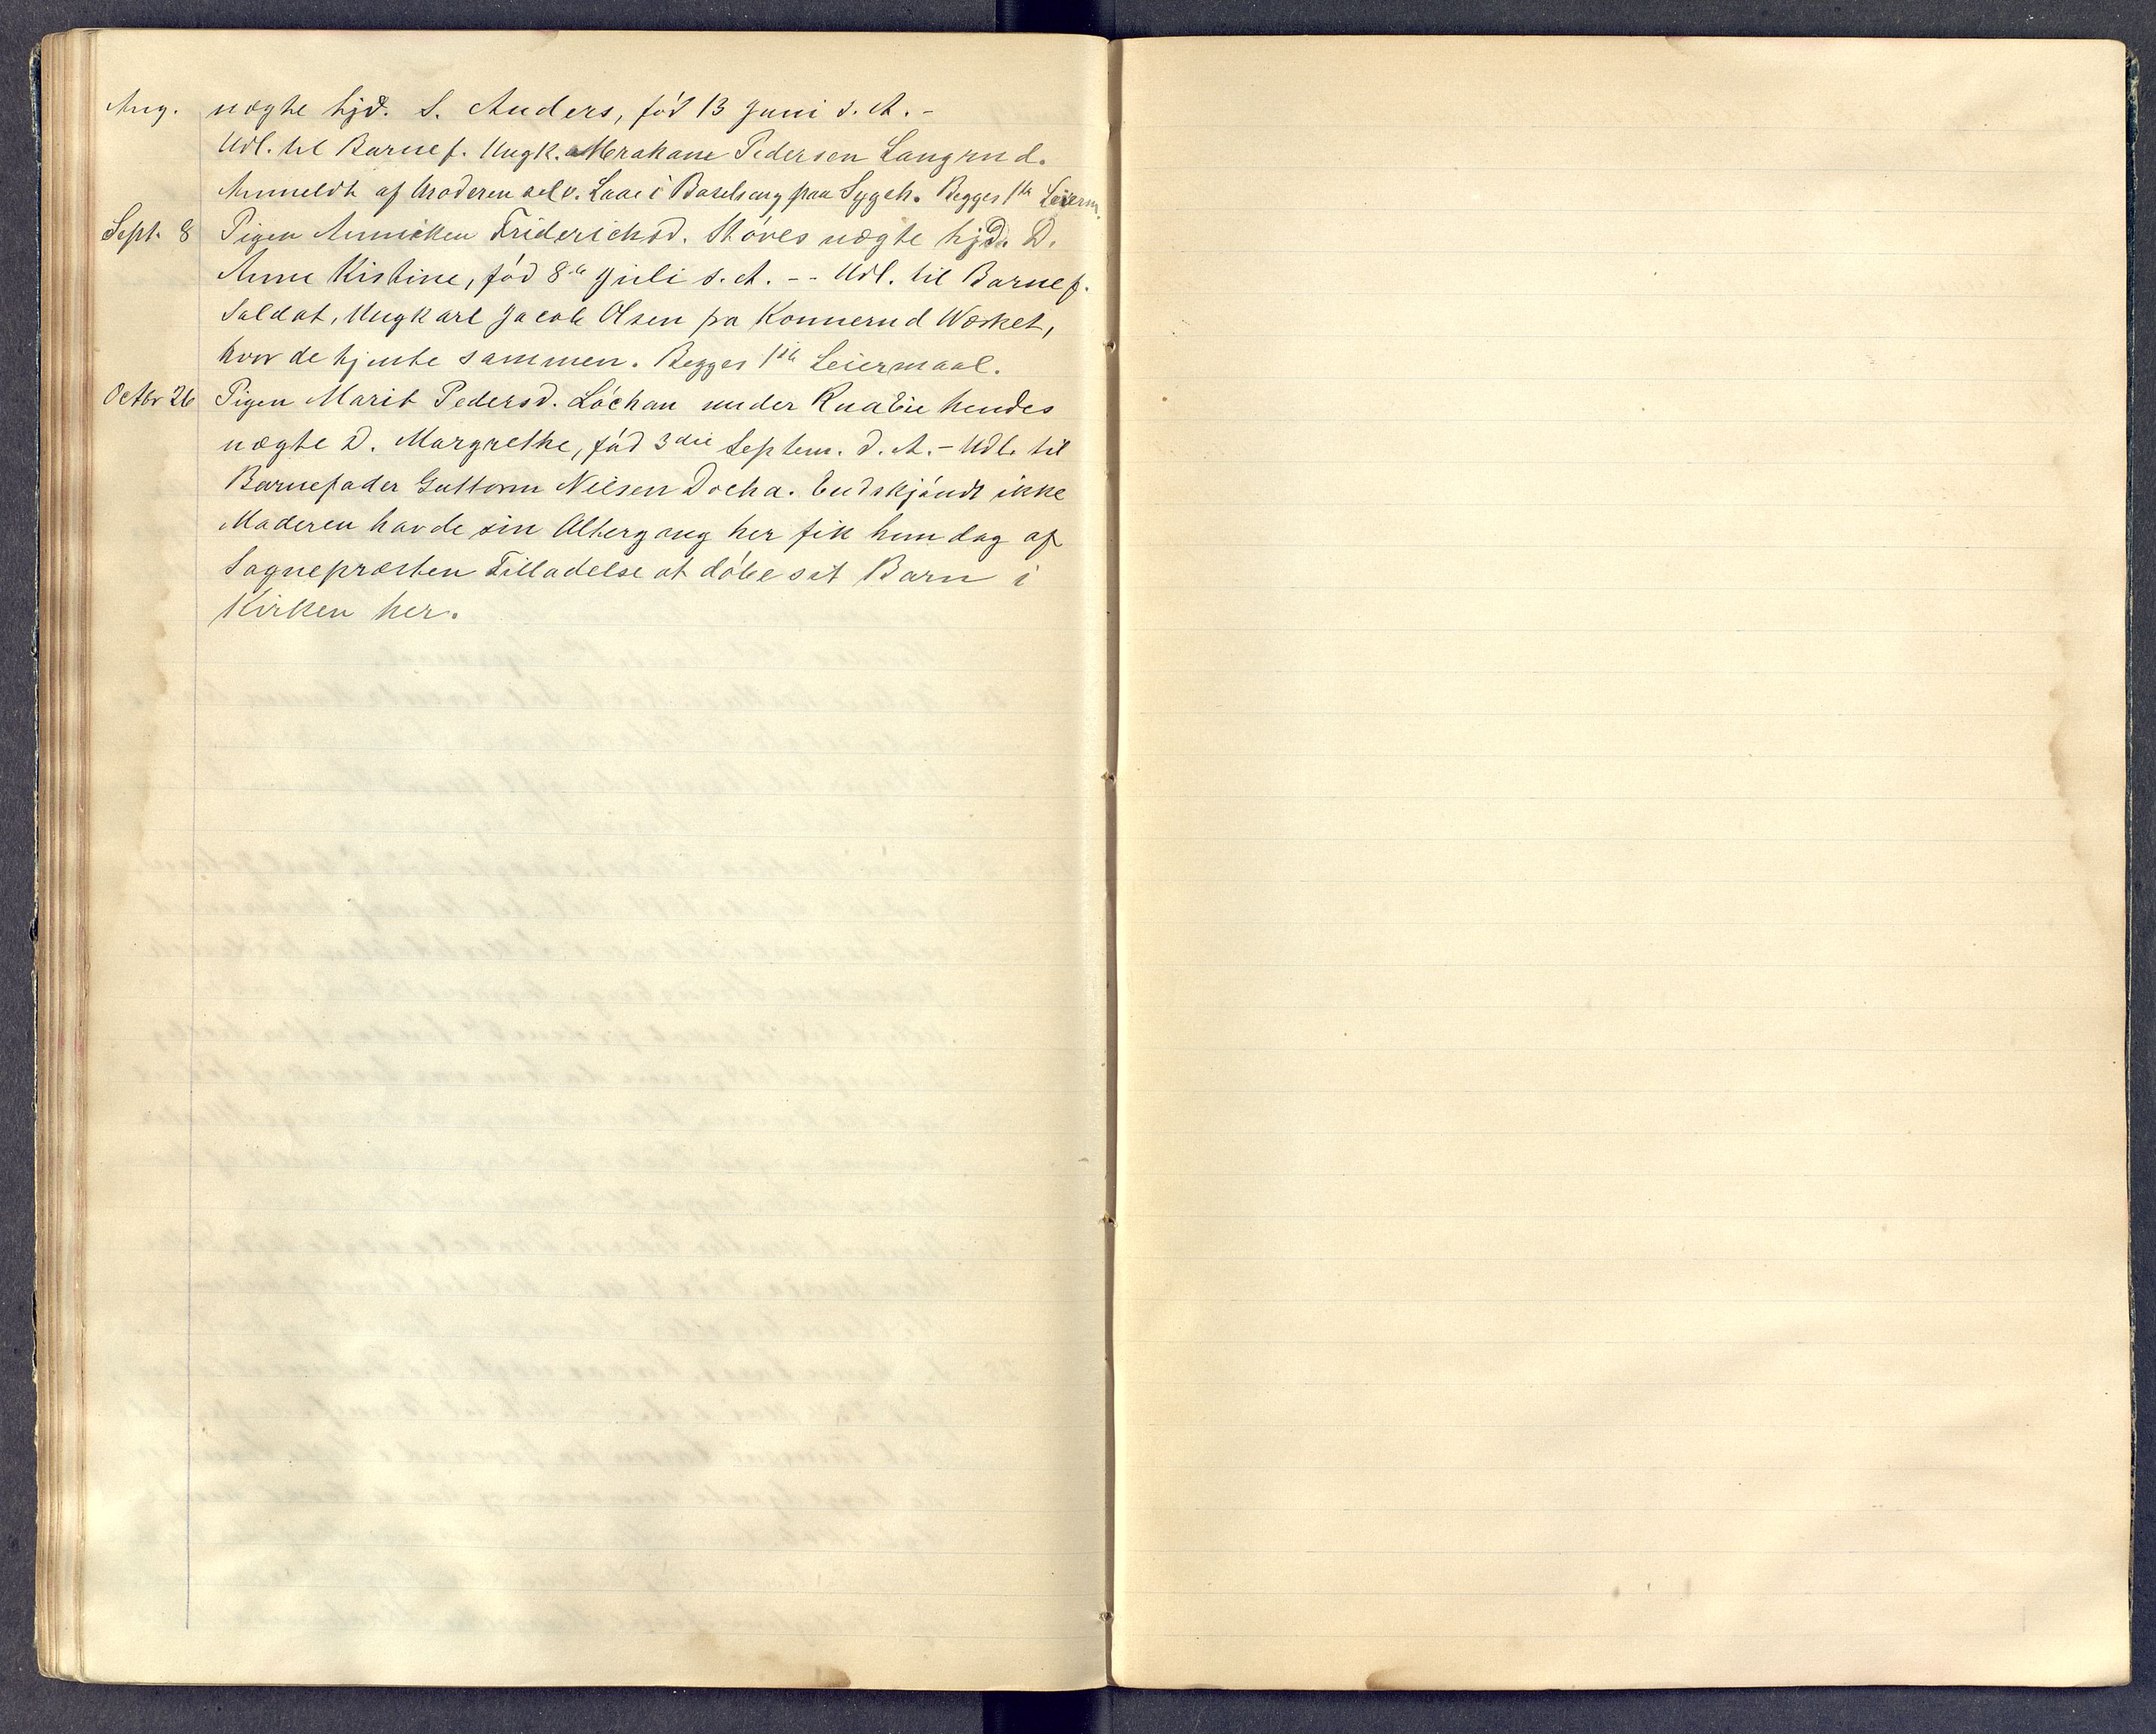 Aug. uægte hjd. S. Anders, fód 13 Juni d. A. –
Udl. til Barnef. Ungk. Abraham Pedersen Langrud.
Anmeldt af Moderen selv. Laae i Barselseng paa Sygeh. Begges 1ste Leierm.
Sept. 8 Pigen Annicken Friderichsd. Stóves uægte hjd. D.
Anne Kistine, fód 8de Juli d. A. -- Udl. til Barnef.
Soldat, Ungkarl Jacob Olsen pa Konnerud Værket,
hvor de tjente sammen. Begges 1ste Leiermaal.
Octbr 26 Pigen Marit Pedersd. Lóchau under hendes
uægte D. Margrethe, fód 3die Septem. d. A. – Udl. til
Barnefader Guttorm Nilsen Docka. Endskjóndt ikke
Moderen havde sin Altergang her fik hun dog af
Sognepræsten Tilladelse at dóbe sit Barn i
Kirken her.